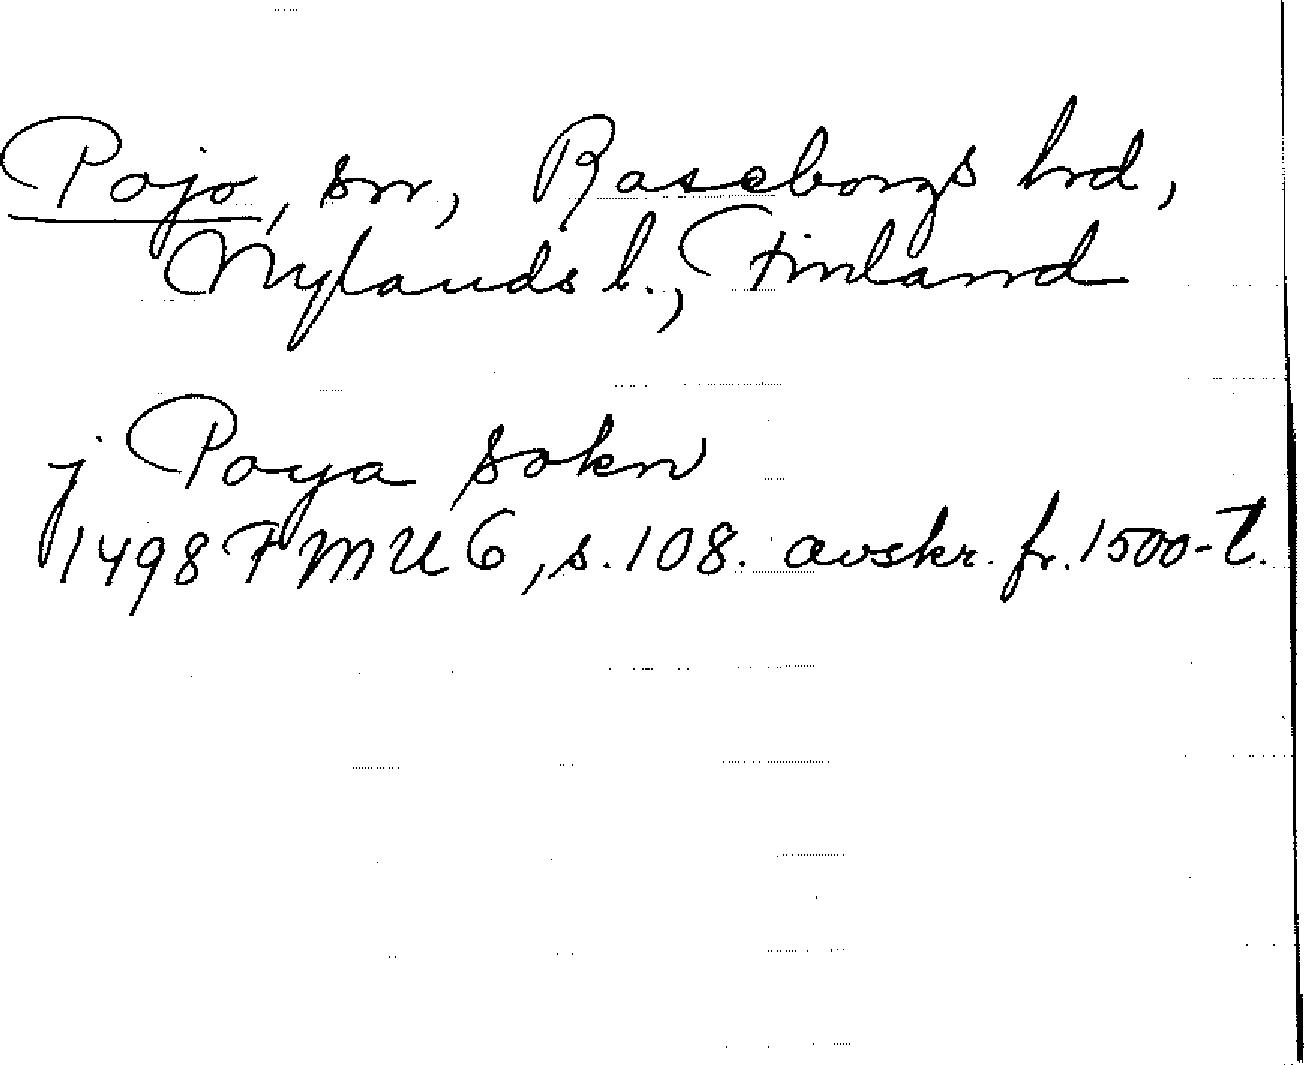 Pojo, sn, Raseborgs hrd,
Nylands l., Finland
j Poya sokn
1498 FMU 6, s. 108. avskr. fr. 1500-t.